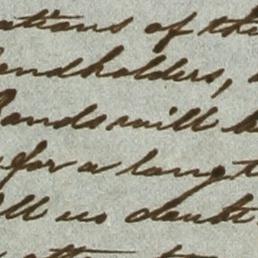 ations of the
andholders,
Lands will b
for a lengt
ll no doubt